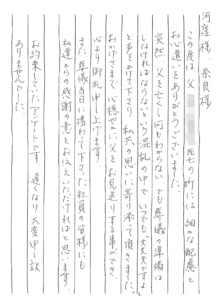 河窪様　奈良様
この度は 父　　　　死亡の折には 細かな配慮と
お心遣いをありがとうございました。
突然 父を亡くし何もわからない でも葬儀の準備は
しなければならないという混乱の中で いつでも大丈夫ですよ
と声をかけて下さり 私共の思いに寄り添って頂きました。
おかげさまで 心穏やかに父をお見送りする事ができ
心より御礼申し上げます
また 葬儀当日に携わって下さった社員の皆様にも
私達からの感謝の意をお伝えいただければと思います
お約束していたアンケートです 遅くなり大変申し訳
ありませんでした。